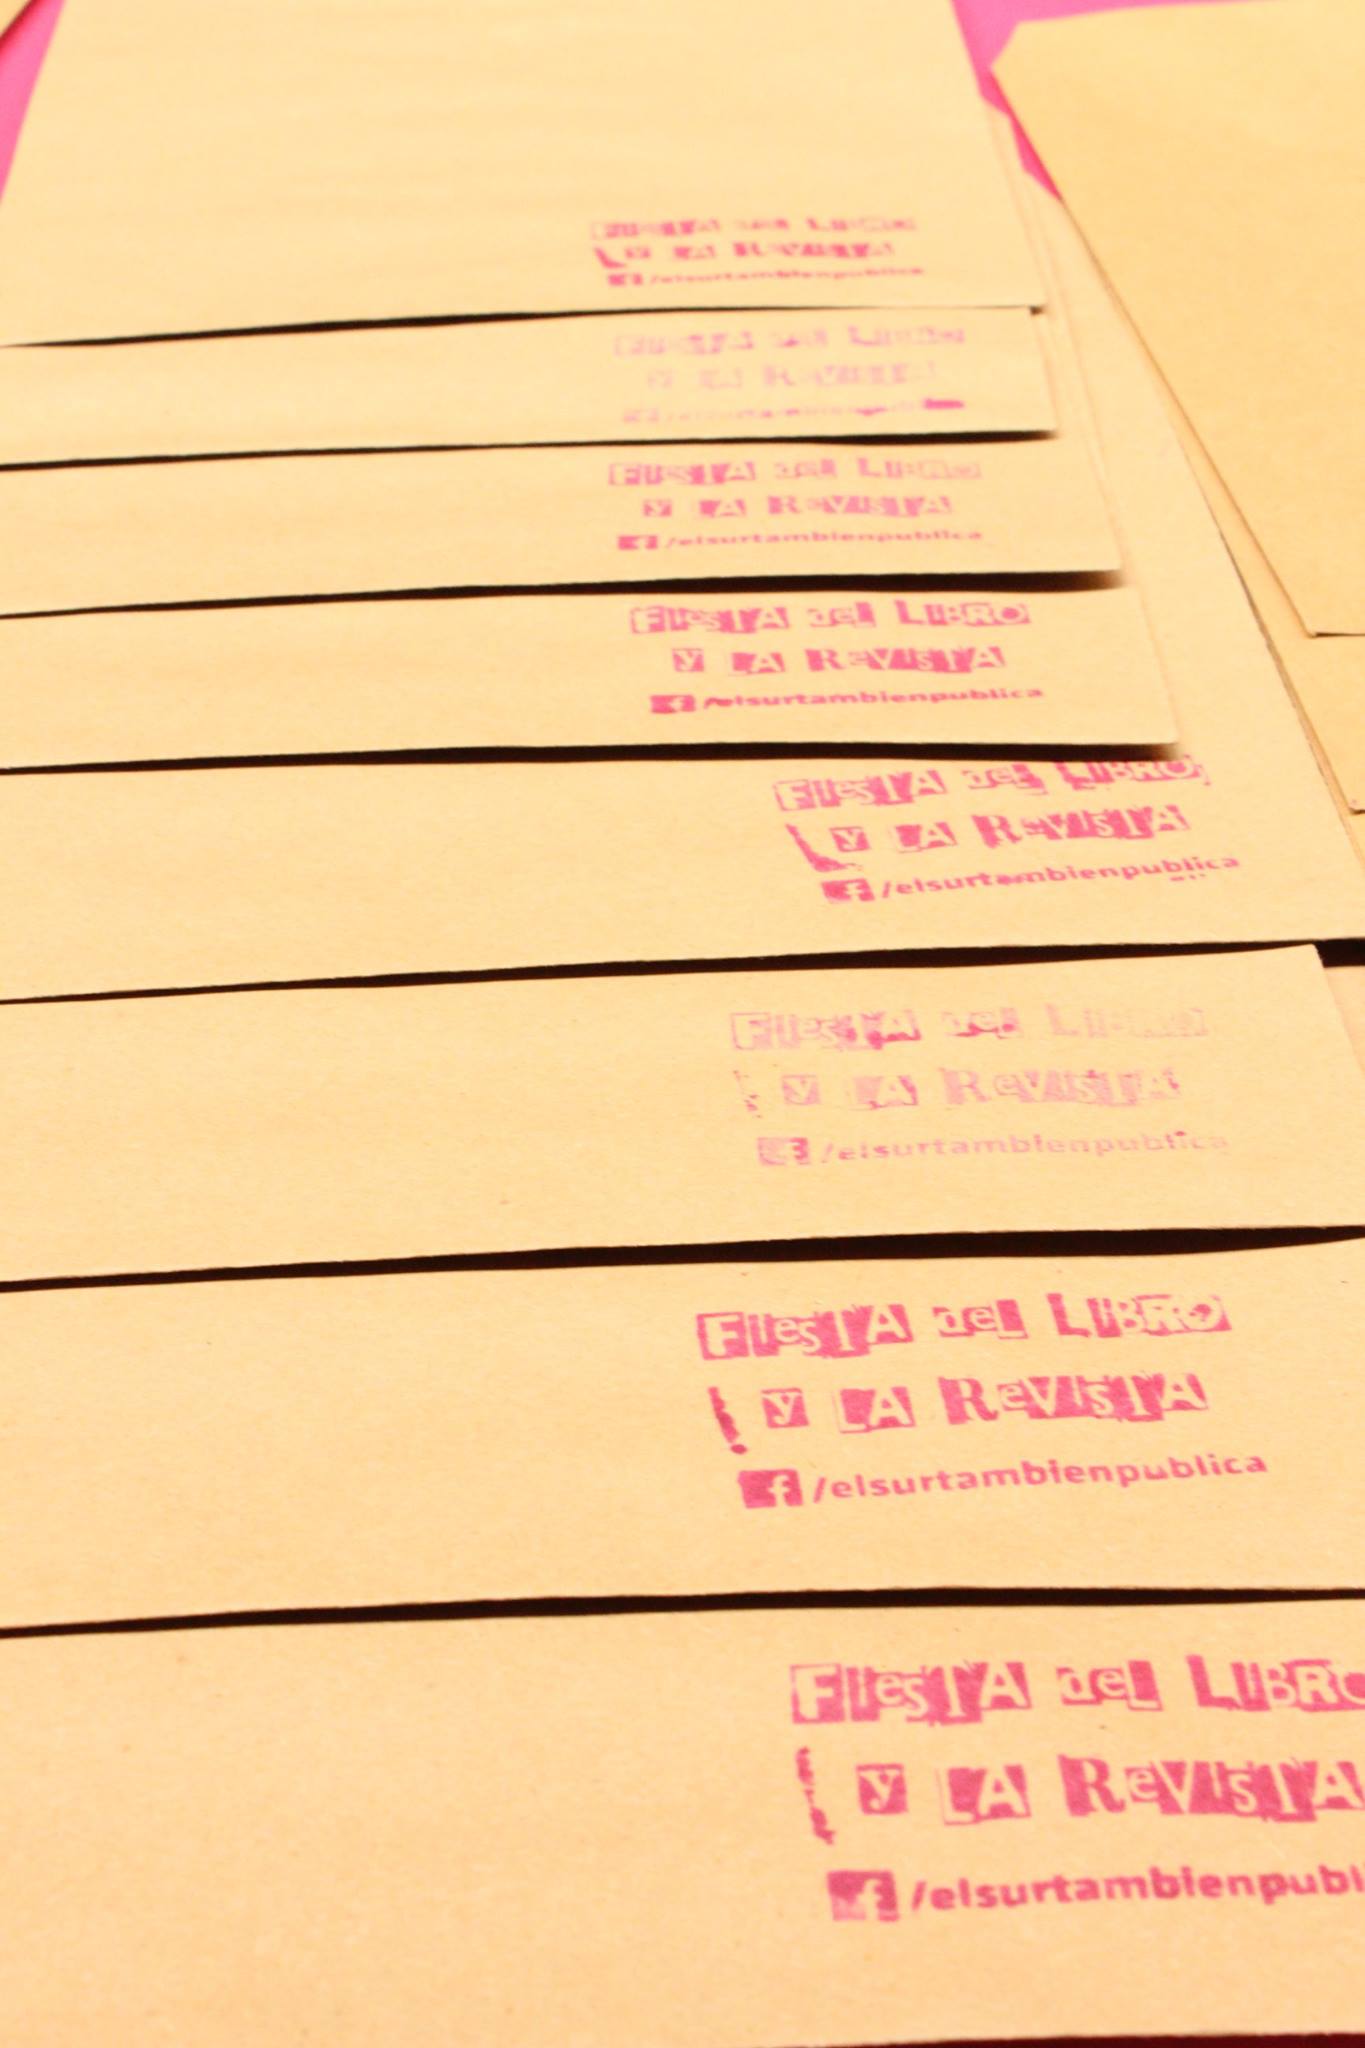 FIesTA deL LIBRO
y LA ReVISTA
/elsurtambienpublica
FIesTA deL LIBRO
y LA ReVISTA
/elsurtambienpubli
FIesTA deL LIBRO
y LA ReVISTA
/elsurtambienpublica
FIesTA deL LIBRO
y LA ReVISTA
/elsurtambienpublica
FIesTA deL LIBRO
y LA ReVISTA
/elsurtambienpublica
FIesTA deL LIBRO
y LA ReVISTA
/elsurtambienpublica
FIesTA deL LIBRO
y LA ReVISTA
/elsurtambienpublica
FIesTA deL LIBRO
y LA ReVISTA
/elsurtambienpubl